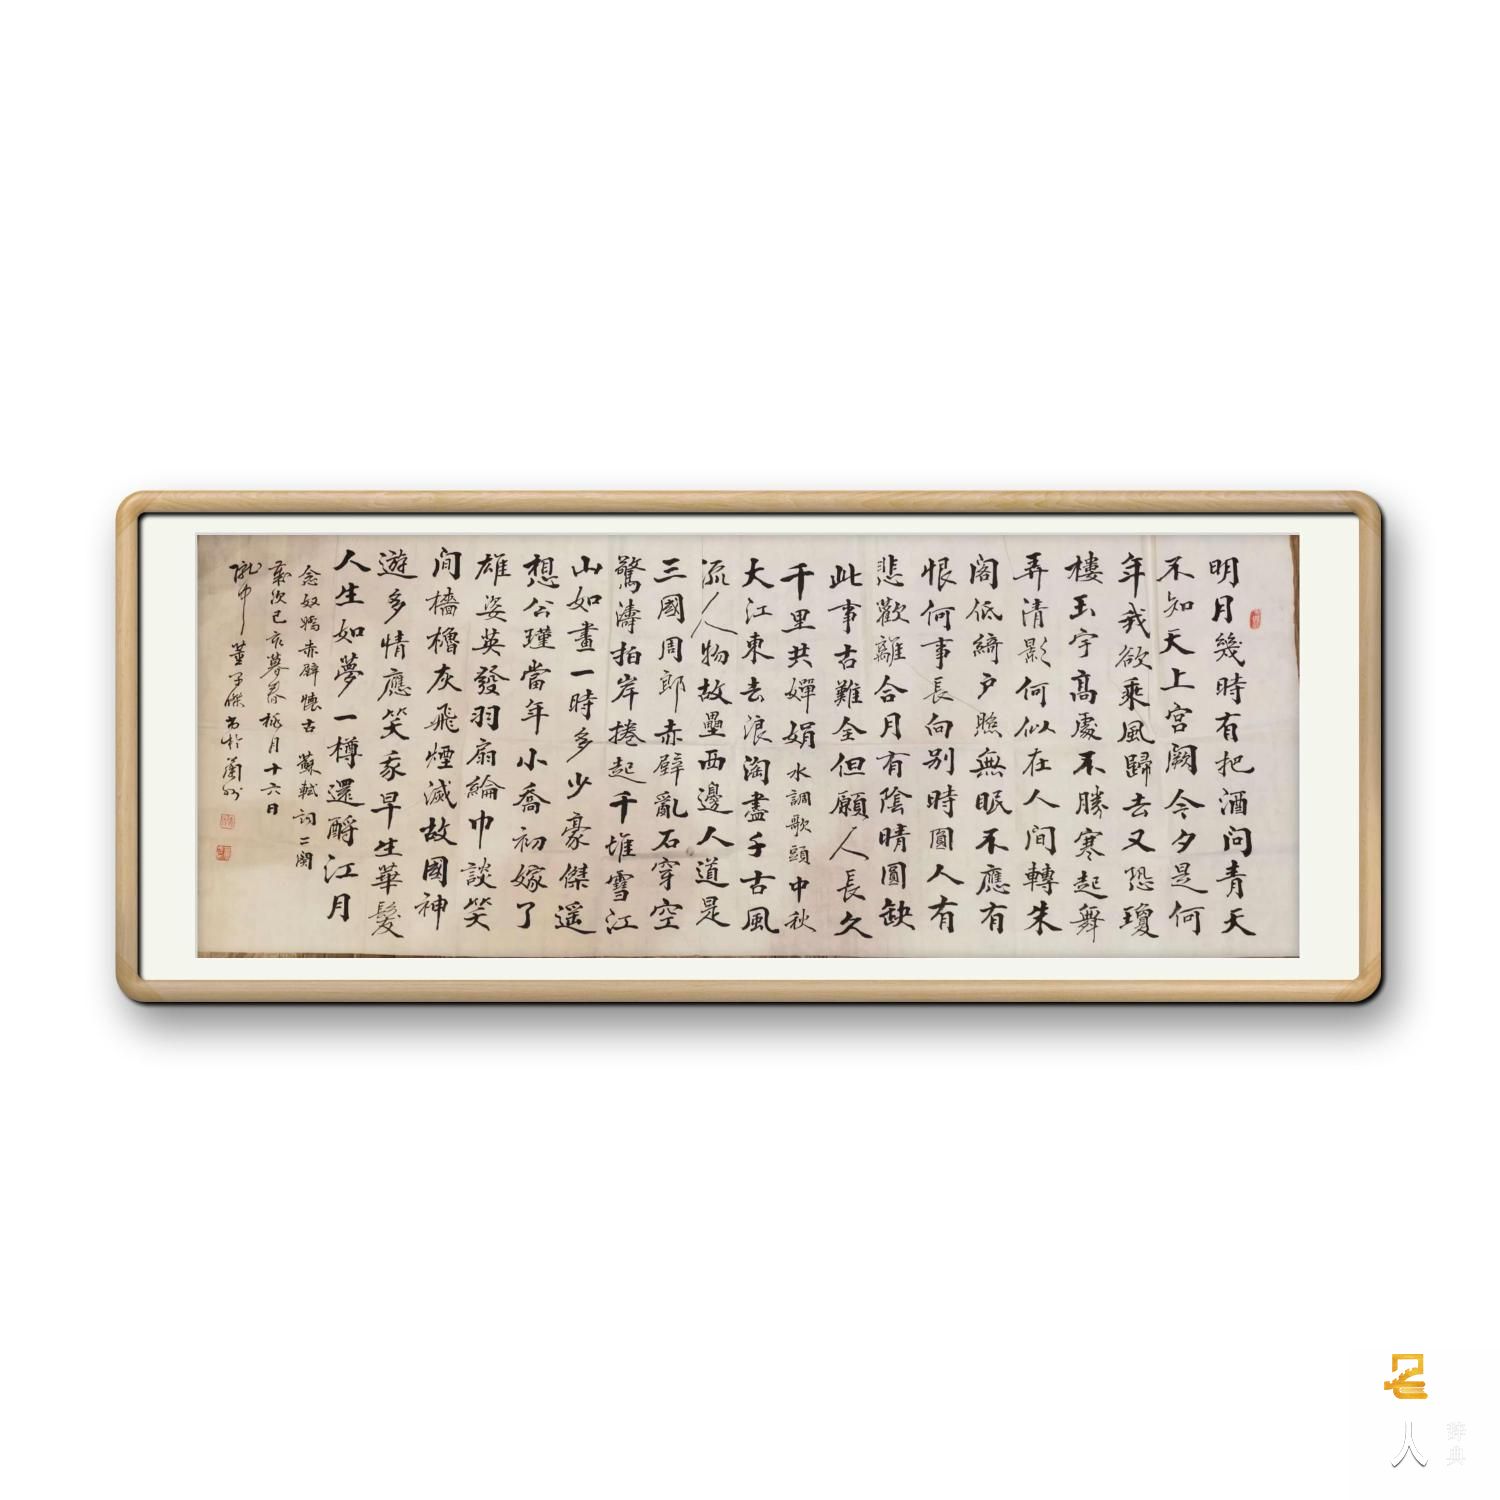 明月幾時有把酒问青天
不知天上宮闕今夕是何
年我欲乘風歸去又恐瓊
樓玉宇高處不勝寒起舞
弄清影何似在人间轉朱
阁低綺户照無眠不應有
恨何事長向别時圓人有
悲歡離合月有陰晴圓缺
此事古難全但願人長久
千里共嬋娟水調歌頭中秋
大江東去浪淘盡千古風
流人物故壘西邊人道是
三國周郎赤壁亂石穿空
驚濤拍岸捲起千堆雪江
山如畫一時多少豪傑遥
想公瑾當年小喬初嫁了
雄姿英發羽扇綸巾談笑
间檣櫓灰飛煙滅故國神
遊多情應笑我早生華髮
人生如夢一樽還酹江月
念奴嬌赤壁懷古 蘇軾詞二闋
歲次己亥暮春桃月十六日
董子傑书於蘭州
名人辞典